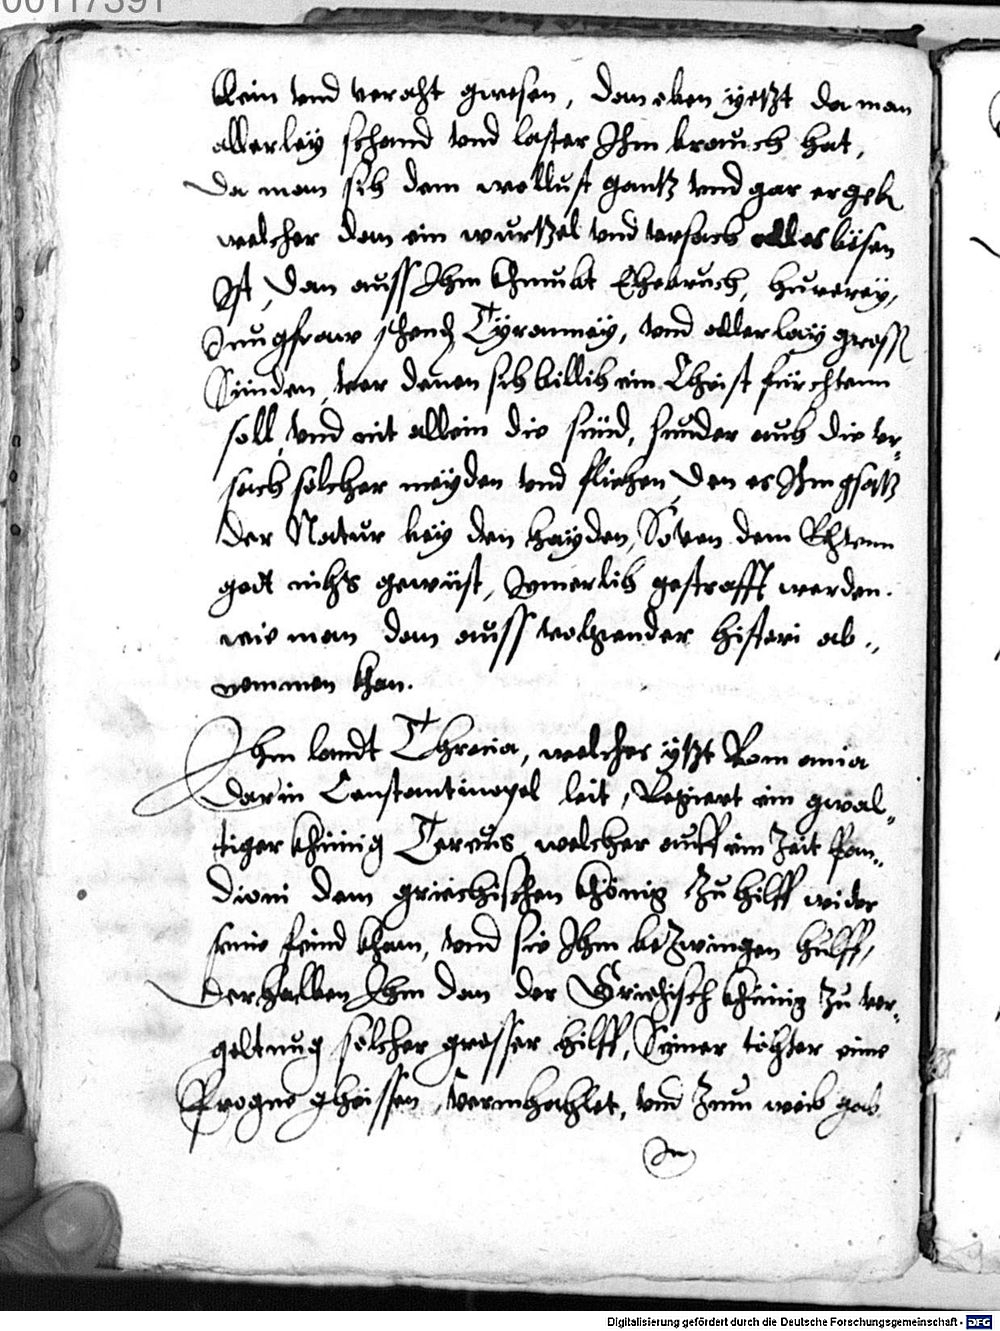 00117391
klein vnd veracht gwesen, dan eben yetzt da man
allerley schand vnd laster Ihm brauch hat,
da man sich dem wollust gantz vnd gar ergeb
welcher dan ein wurtzel vnd vrsach alles bösen
Ist, dan auss Ihm khumbt Ehebruch, hurerey,
Jungfraw schend, Tyranney, vnd allerlay gross
Sünden, vor denen sich billich ein Christ fürchtenn
soll, vnd nit allein die sünd, sunder auch die vr„
sach solcher meyden vnd fliehen, den es Ihm gsatz
der Natur bey den hayden, So von dem Rechtenn
gott nichts gewüst, Ymerlich gestrafft werden.
wie man dan auss volgender histori ab„
nemmen khan.
Ihm landt Thracia, welches yetzt Romania
darin Constantinopel leit, Regiert ein gwal„
tiger khünig Tereus, welcher auff ein Zeit Pan„
dioni dem griechischen khönig Zu hilff wider
seine feind kham, vnd sie Ihm bezwingen hulff,
derhalben Ihm dan der Griechisch khünig zu ver„
geltnug solcher grosser hilff, Seiner töchter eine
Progne gheissen, vermehahlet, vnd Zum weib gab
In
Digitalisierung gefördert durch die Deutsche Forschungsgemeinschaft - DFG